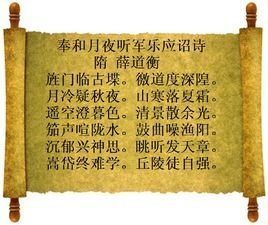 奉和月夜听军乐应诏诗
隋 薛道衡
旌门临古堞。微道度深隍。
月冷疑秋夜。山寒落夏霜。
遥空澄暮色。清景散余光。
笳声喧陇水。鼓曲噪渔阳。
沉郁兴神思。眺听发天章。
嵩岱终难学。丘陵徒自强。